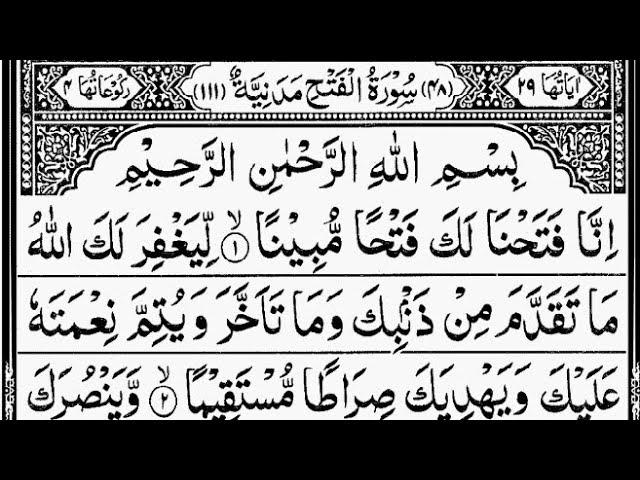 اٰيَاتُهَا ٢٩ (٤٨) سُوْرَةُ الْفَتْحِ مَدَنِيَّةٌ (١١١) رُكُوْعَاتُهَا ٤
بِسْمِ اللهِ الرَّحْمٰنِ الرَّحِيْمِ
اِنَّا فَتَحْنَا لَكَ فَتْحًا مُّبِيْنًا ۙ ١ لِّيَغْفِرَ لَكَ اللهُ
مَا تَقَدَّمَ مِنْ ذَنْۢبِكَ وَمَا تَاَخَّرَ وَيُتِمَّ نِعْمَتَهٗ
عَلَيْكَ وَيَهْدِيَكَ صِرَاطًا مُّسْتَقِيْمًا ۙ ٢ وَّيَنْصُرَكَ